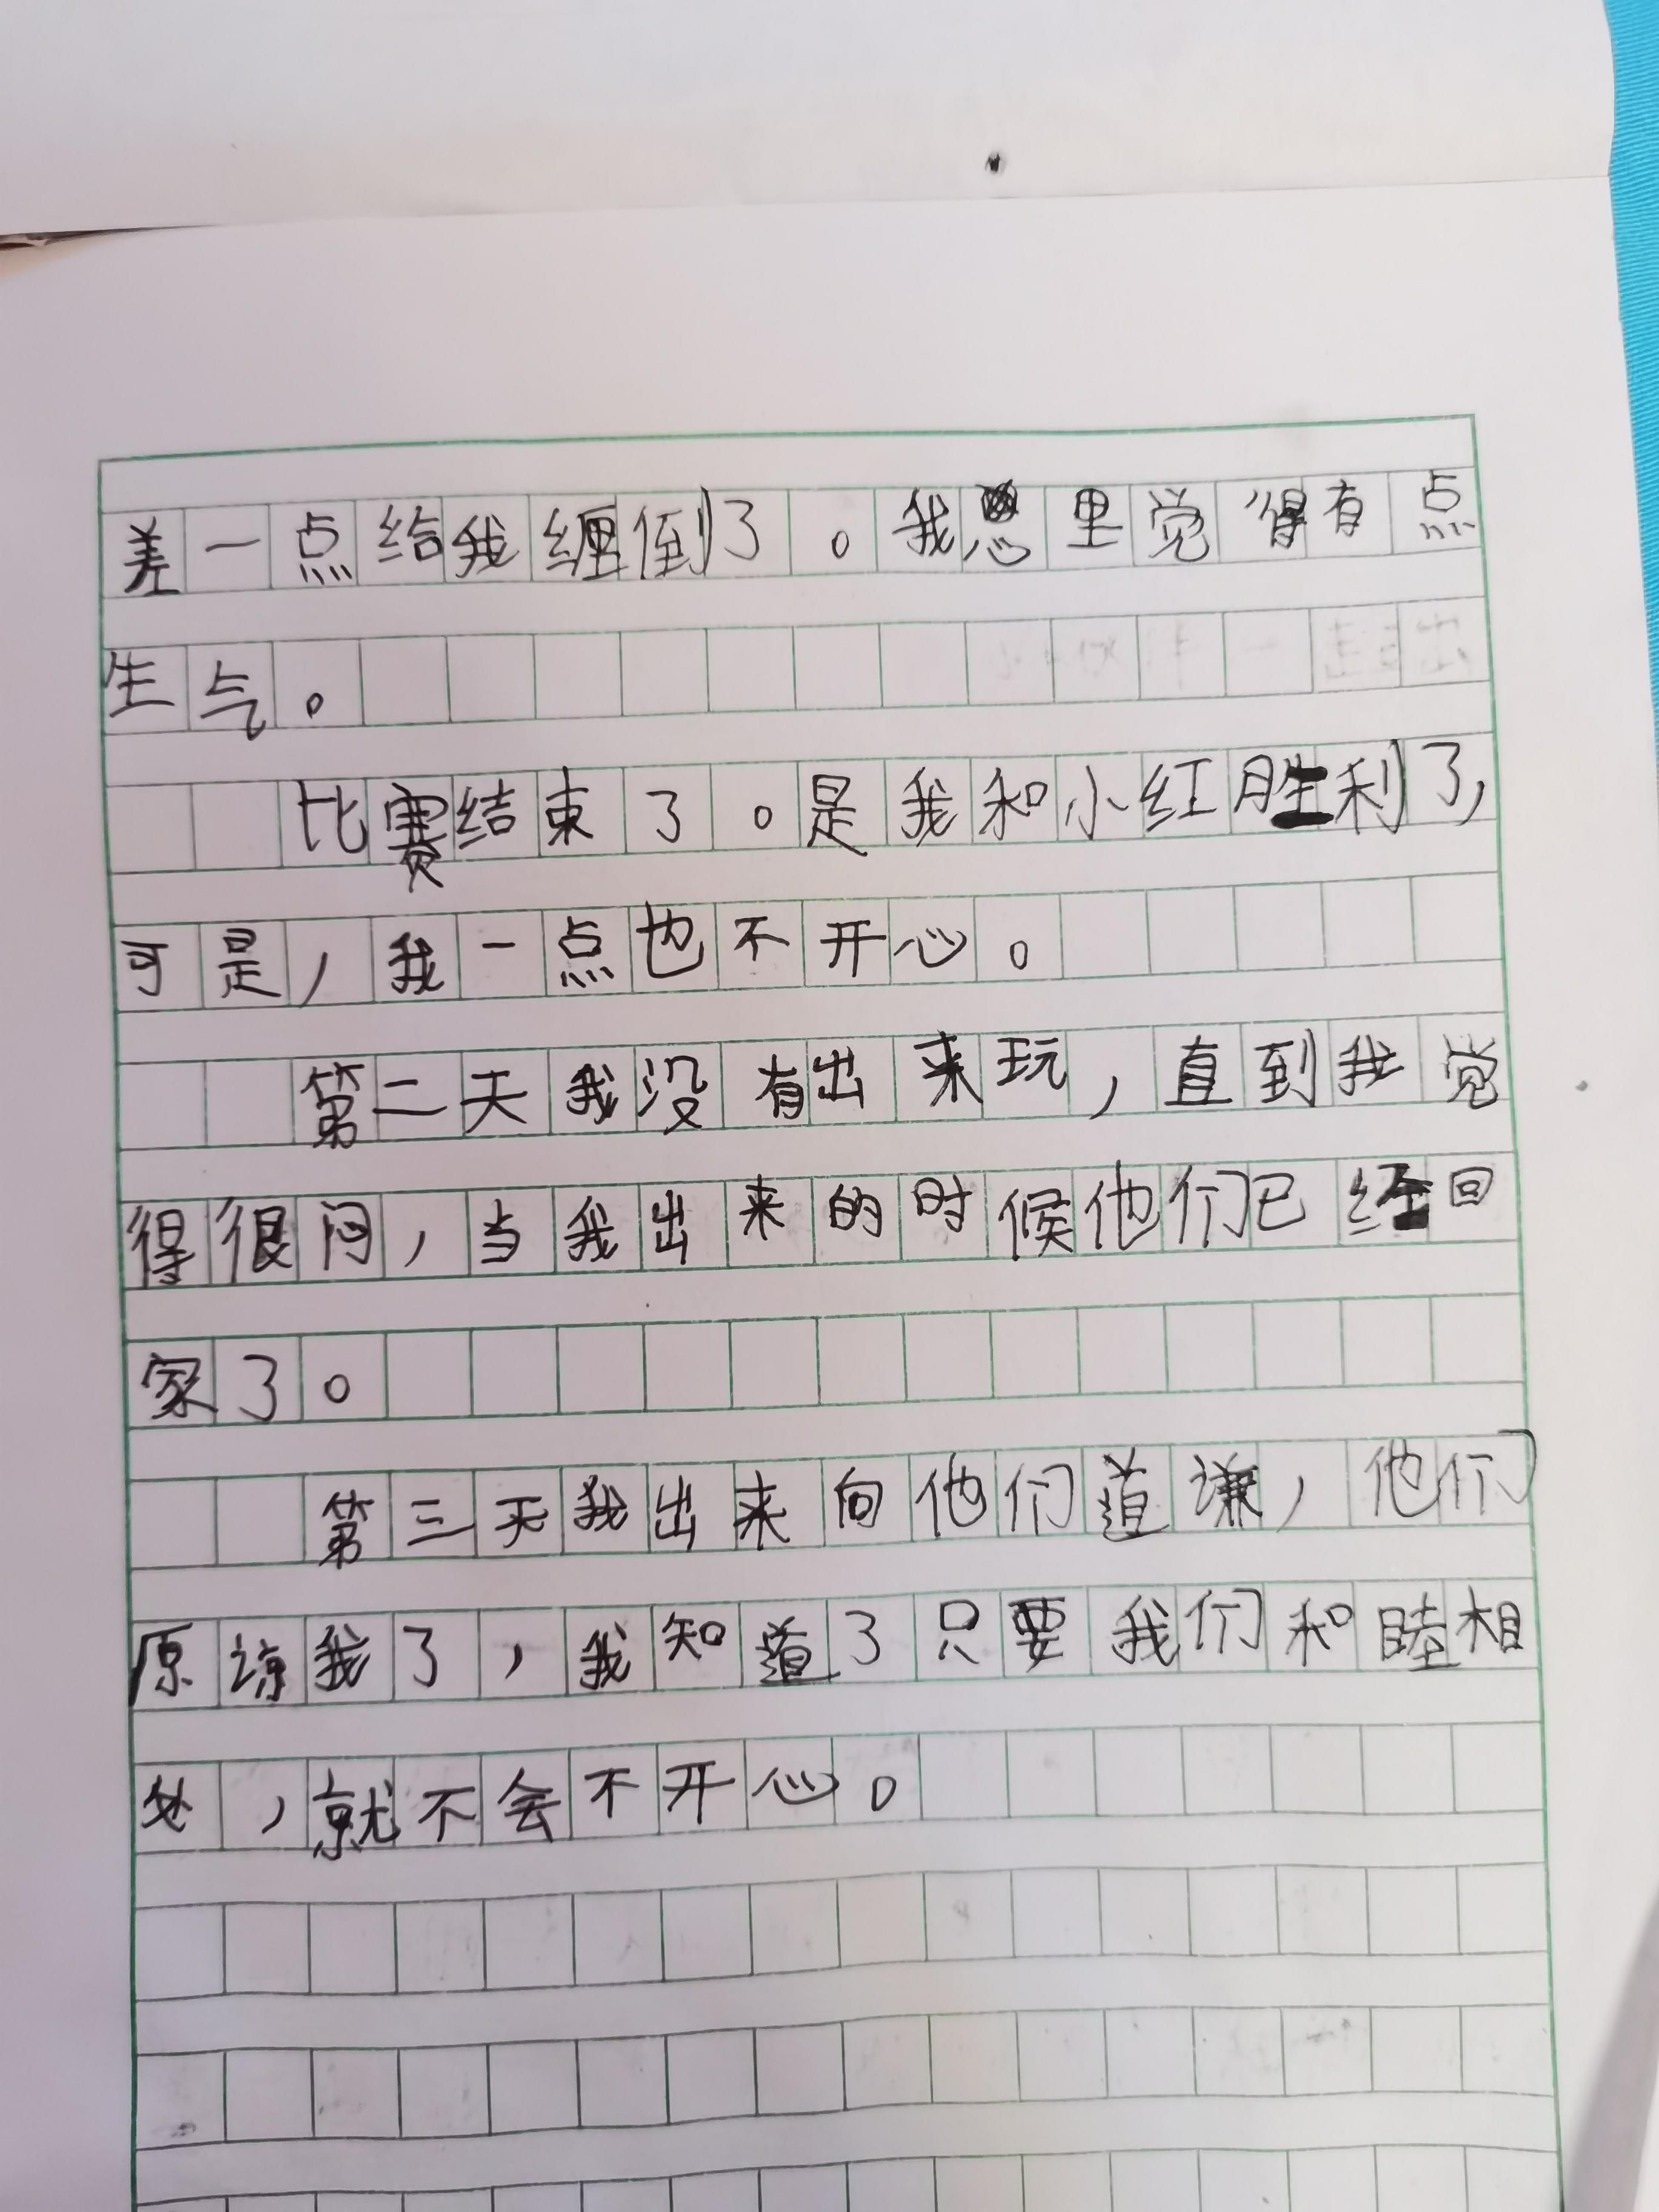 差一点给我缠倒了。我心里觉得有点
生气。
比赛结束了。是我和小红胜利了,
可是,我一点也不开心。
第二天我没有出来玩,直到我觉
得很闷,当我出来的时候他们已经回
家了。
第三天我出来向他们道谦,他们
原谅我了,我知道了只要我们和睦相
处,就不会不开心。